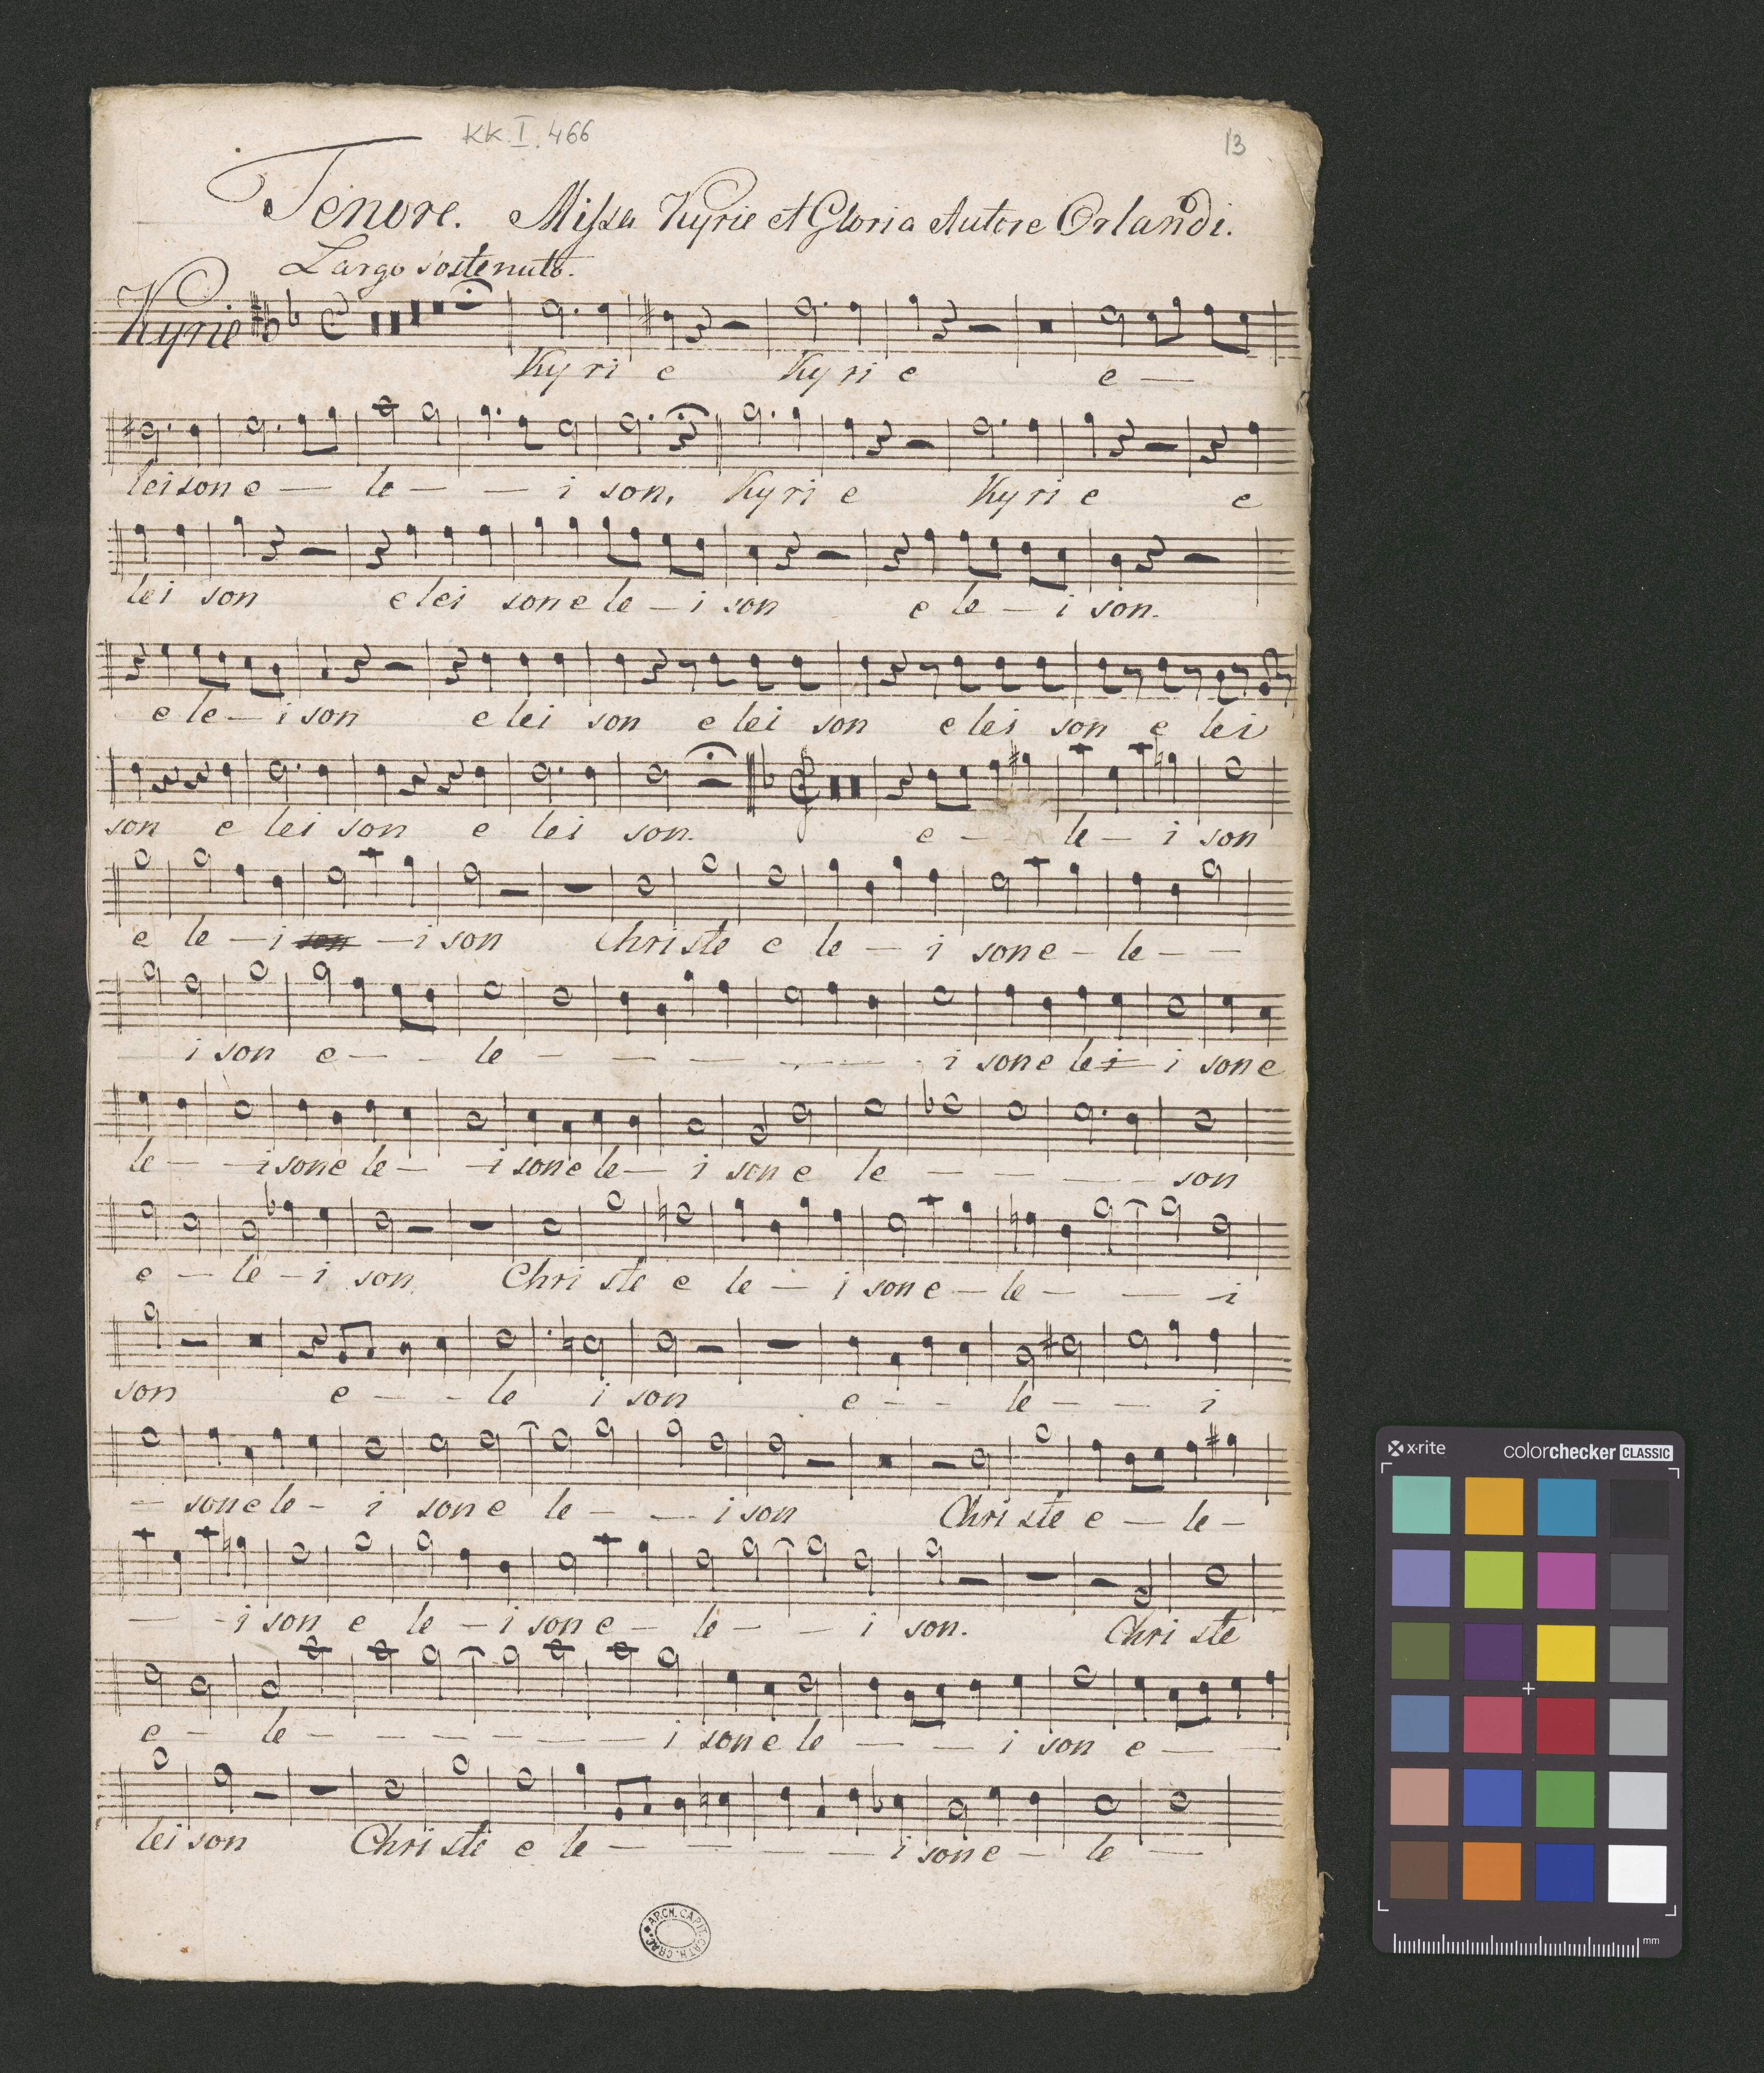 KK I. 466
13
Tenore. Missa Kyrie et Gloria Autore Orlandi.
Largo sostenuto.
Kyrie
Ky ri e Ky ri e e —
lei son e — le — — i son, Ky ri e Ky ri e e
lei son e lei son e le — i son e le — i son.
e le — i son e lei son e lei son e lei son e lei
son e lei son e lei son. e — le — i son
e le — i son — i son Christe e le — i son e — le — —
i son e — - le - — — - — - i son e lei i son e
le — — i son e le — — i son e le — i son e le — — — — son
e — le — i son. Chri ste e le — i son e — le — — — i
son e — - le i son e - - le — — i
— son e le - i son e le — — i son Chri ste e — le —
— - i son e le — i son e — le — — i son. Chri ste
e — le — — — — — — i son e le — — i son e — —
lei son Chri ste e le — — — — — i son e — le —
ARCH. CAPIT. CATH. CRAC.
x·rite
colorchecker CLASSIC
mm